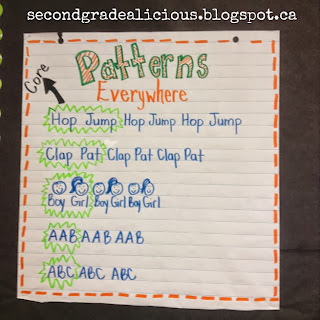 secondgradealicious.blogspot.ca
Core
Patterns
Everywhere
Hop Jump Hop Jump Hop Jump
Clap Pat Clap Pat Clap Pat
Boy Girl Boy Girl Boy Girl
AAB AAB AAB
ABC ABC ABC